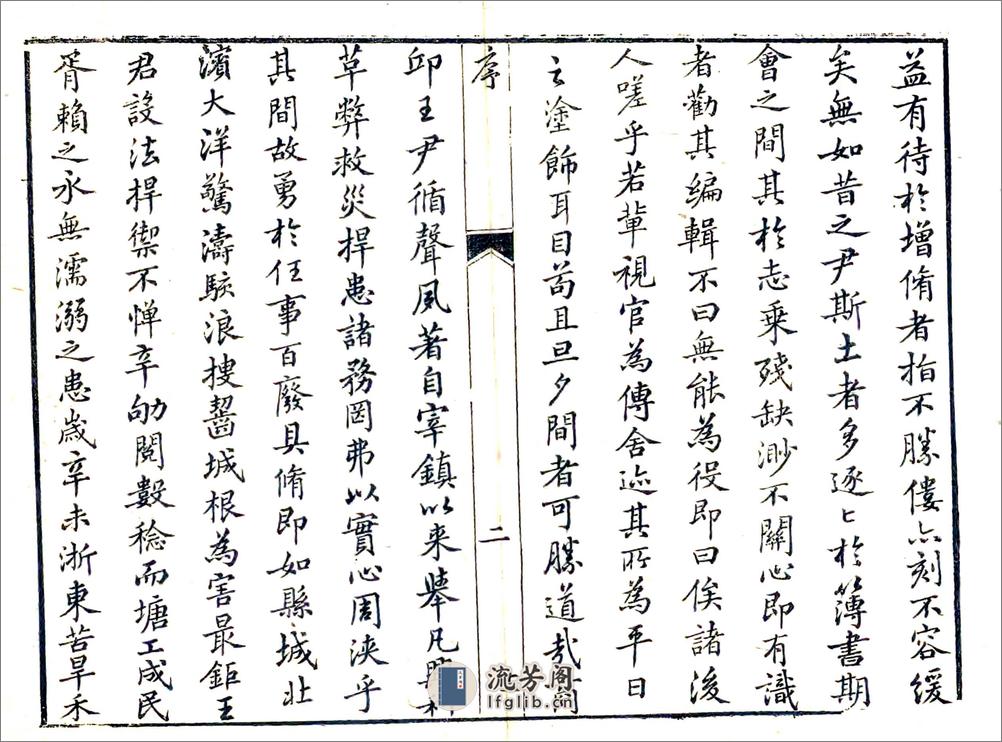 益有待於增脩者指不勝僂亦刻不容緩
矣無如昔之尹斯土者多逐匕於簿書期
會之間其於志乗殘缺渺不關心即有識
者勸其編輯不曰無能為役即曰俟諸後
人嗟乎若輩視官為傳舍迹其所為平日
之塗飾耳目苟且旦夕間者可勝道哉
序
二
邱王尹循聲夙著自宰鎮以来舉凡興利
革弊救災捍患諸務罔弗以實心周浹乎
其間故勇於任事百廢具脩即如縣城北
濱大洋驚濤駭浪摟齧城根為害最鉅王
君設法捍禦不憚辛劬閱數稔而塘工成民
胥賴之永無濡溺之患歲辛未浙東苦旱禾
流芳阁
lfglib.cn